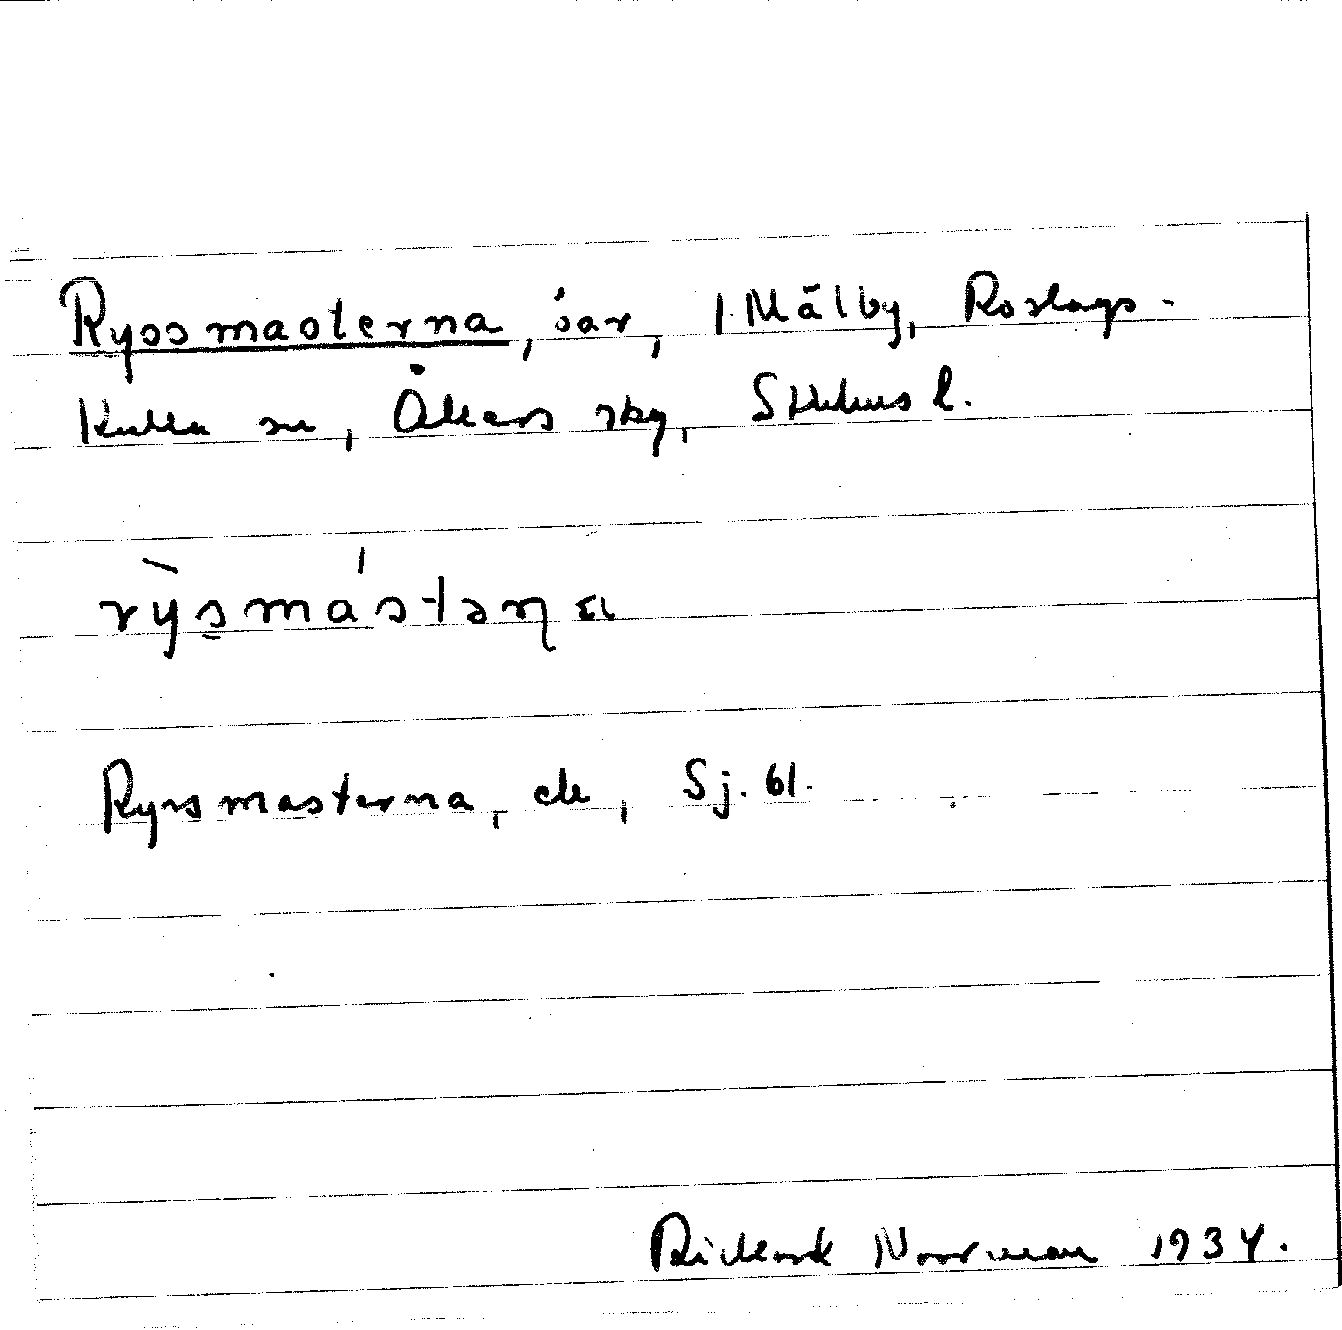 Ryssmasterna, öar, i Målby, Roslags-
Kulla sn, Åkers skg, Sthlms l.
rỳsmástəɳa
Ryssmasterna, de, Sj. 61.
Rickard Norrman 1934.